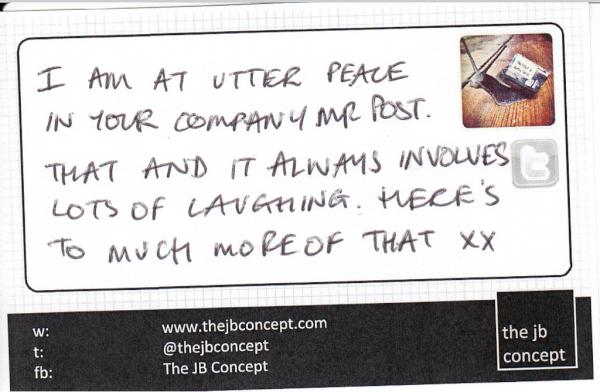 I AM AT UTTER PEACE
IN YOUR COMPANY MR POST.
THAT AND IT ALWAYS INVOLVES
LOTS OF LAUGHING. HERE'S
TO MUCH MORE OF THAT XX
w: www.thejbconcept.com
t: @thejbconcept
fb: The JB Concept
the jb
concept